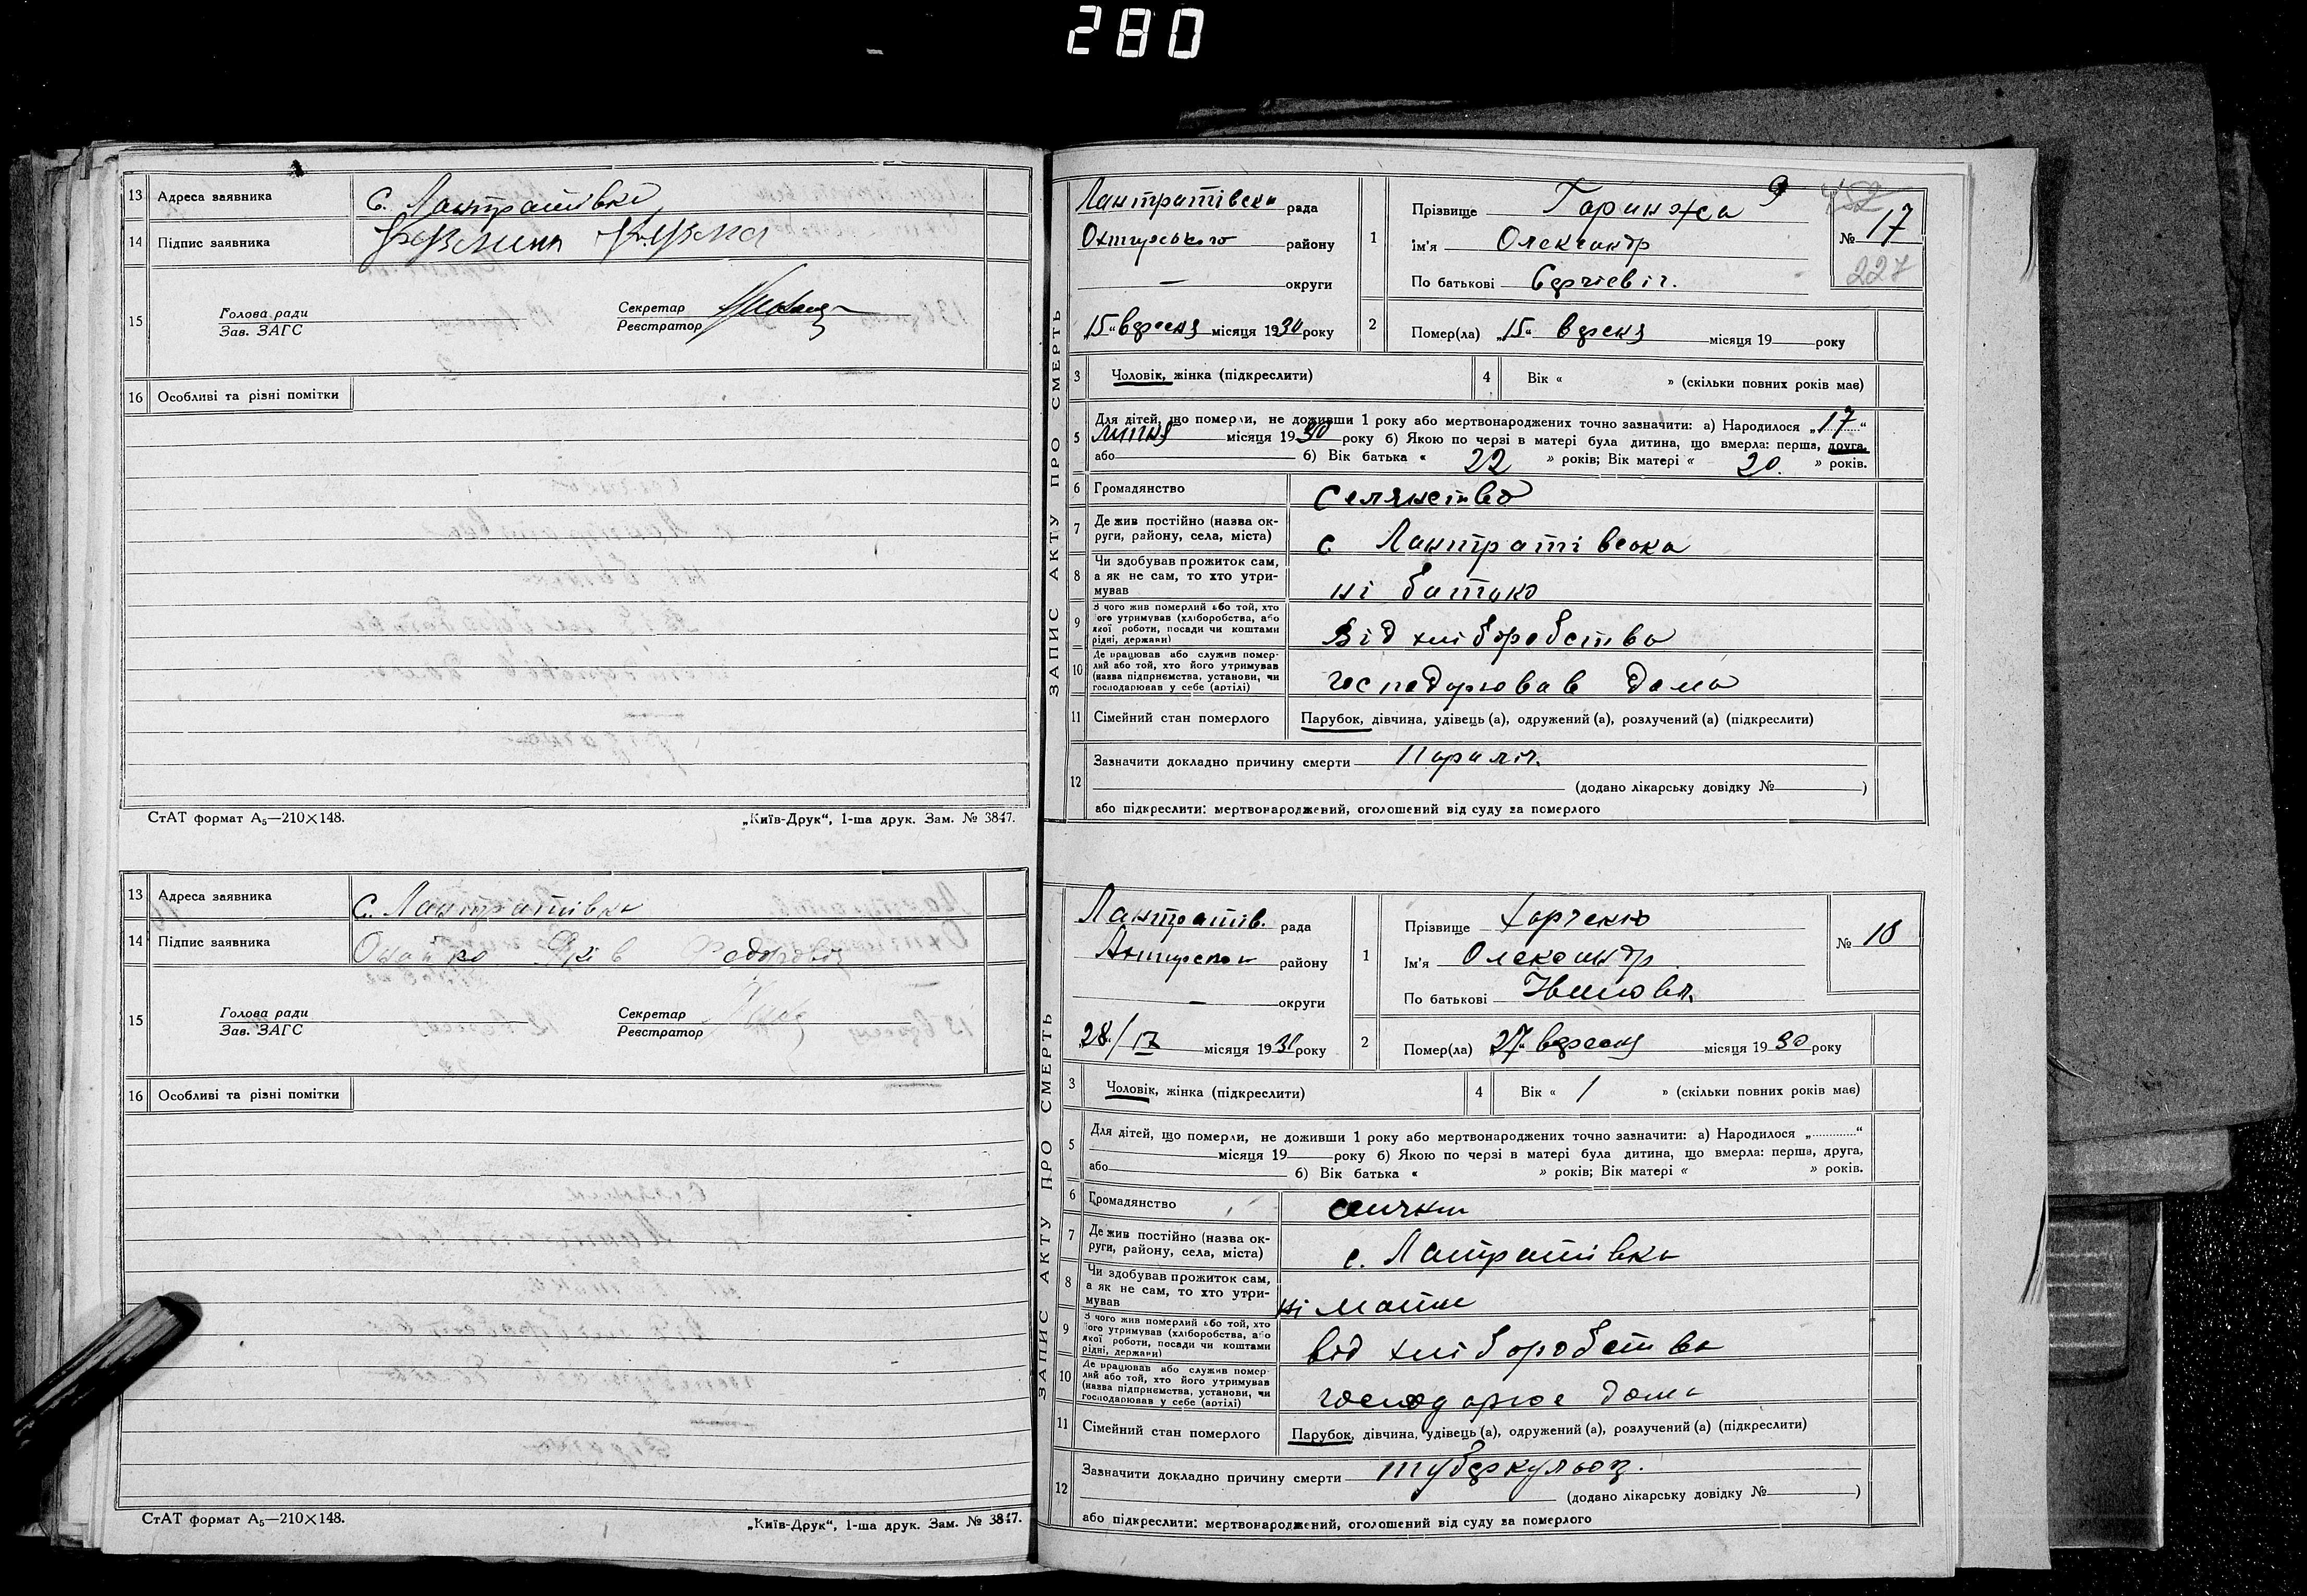 280
13 Адреса заявника с. Лантратівка
14 Підпис заявника
15 Голова ради
Зав. ЗАГС
Секретар
Реєстратор
16 Особливі та різні помітки
СтАТ формат А5—210×148. „Київ-Друк“, 1-ша друк. Зам. № 3847.
13 Адреса заявника с. Лантратівка
14 Підпис заявника Яків Федорович
15 Голова ради
Зав. ЗАГС
Секретар
Реєстратор
16 Особливі та різні помітки
СтАТ формат А5—210×148. „Київ-Друк“, 1-ша друк. Зам. № 3847.
ЗАПИС АКТУ ПРО СМЕРТЬ
Лантратівська рада
Охтирського району
— округи
„15“ вересня місяця 1930 року
1 Прізвище Гаринжа
Ім'я Олександр
По батькові Сергієвіч.
№ 17
227
2 Помер(ла) „15“ вересня місяця 19 року
3 Чоловік, жінка (підкреслити)
4 Вік « » (скільки повних років має)
5 Для дітей, що померли, не доживши 1 року або мертвонароджених точно зазначити: а) Народилося „17“
липня місяця 1930 року б) Якою по черзі в матері була дитина, що вмерла: перша, друга,
або б) Вік батька « 22 » років; Вік матері « 20. » років.
6 Громадянство селянство
7 Де жив постійно (назва округи, району, села, міста) с. Лантратівська
8 Чи здобував прожиток сам, а як не сам, то хто утримував ні батько
9 З чого жив померлий або той, хто його утримував (хліборобства, або якої роботи, посади чи коштами рідні, держави) Від хліборобства
10 Де працював або служив померлий або той, хто його утримував (назва підприємства, установи, чи господарював у себе (артілі) господарював дома
11 Сімейний стан померлого Парубок, дівчина, удівець (а), одружений (а), розлучений (а) (підкреслити)
12 Зазначити докладно причину смерти Параліч.
(додано лікарську довідку № )
або підкреслити: мертвонароджений, оголошений від суду за померлого
ЗАПИС АКТУ ПРО СМЕРТЬ
Лантратів. рада
району
— округи
„28“/ місяця 19 року
1 Прізвище Харченко
Ім'я Олександр
По батькові
№ 18
2 Помер(ла) „27“ вересня місяця 1930 року
3 Чоловік, жінка (підкреслити)
4 Вік « 1 » (скільки повних років має)
5 Для дітей, що померли, не доживши 1 року або мертвонароджених точно зазначити: а) Народилося „ “
місяця 19 року б) Якою по черзі в матері була дитина, що вмерла: перша, друга,
або б) Вік батька « » років; Вік матері « » років.
6 Громадянство
7 Де жив постійно (назва округи, району, села, міста) с. Латратівка
8 Чи здобував прожиток сам, а як не сам, то хто утримував ні мати
9 З чого жив померлий або той, хто його утримував (хліборобства, або якої роботи, посади чи коштами рідні, держави) від хліборобства
10 Де працював або служив померлий або той, хто його утримував (назва підприємства, установи, чи господарював у себе (артілі) господарює дома
11 Сімейний стан померлого Парубок, дівчина, удівець (а), одружений (а), розлучений (а) (підкреслити)
12 Зазначити докладно причину смерти туберкульоз.
(додано лікарську довідку № )
або підкреслити: мертвонароджений, оголошений від суду за померлого